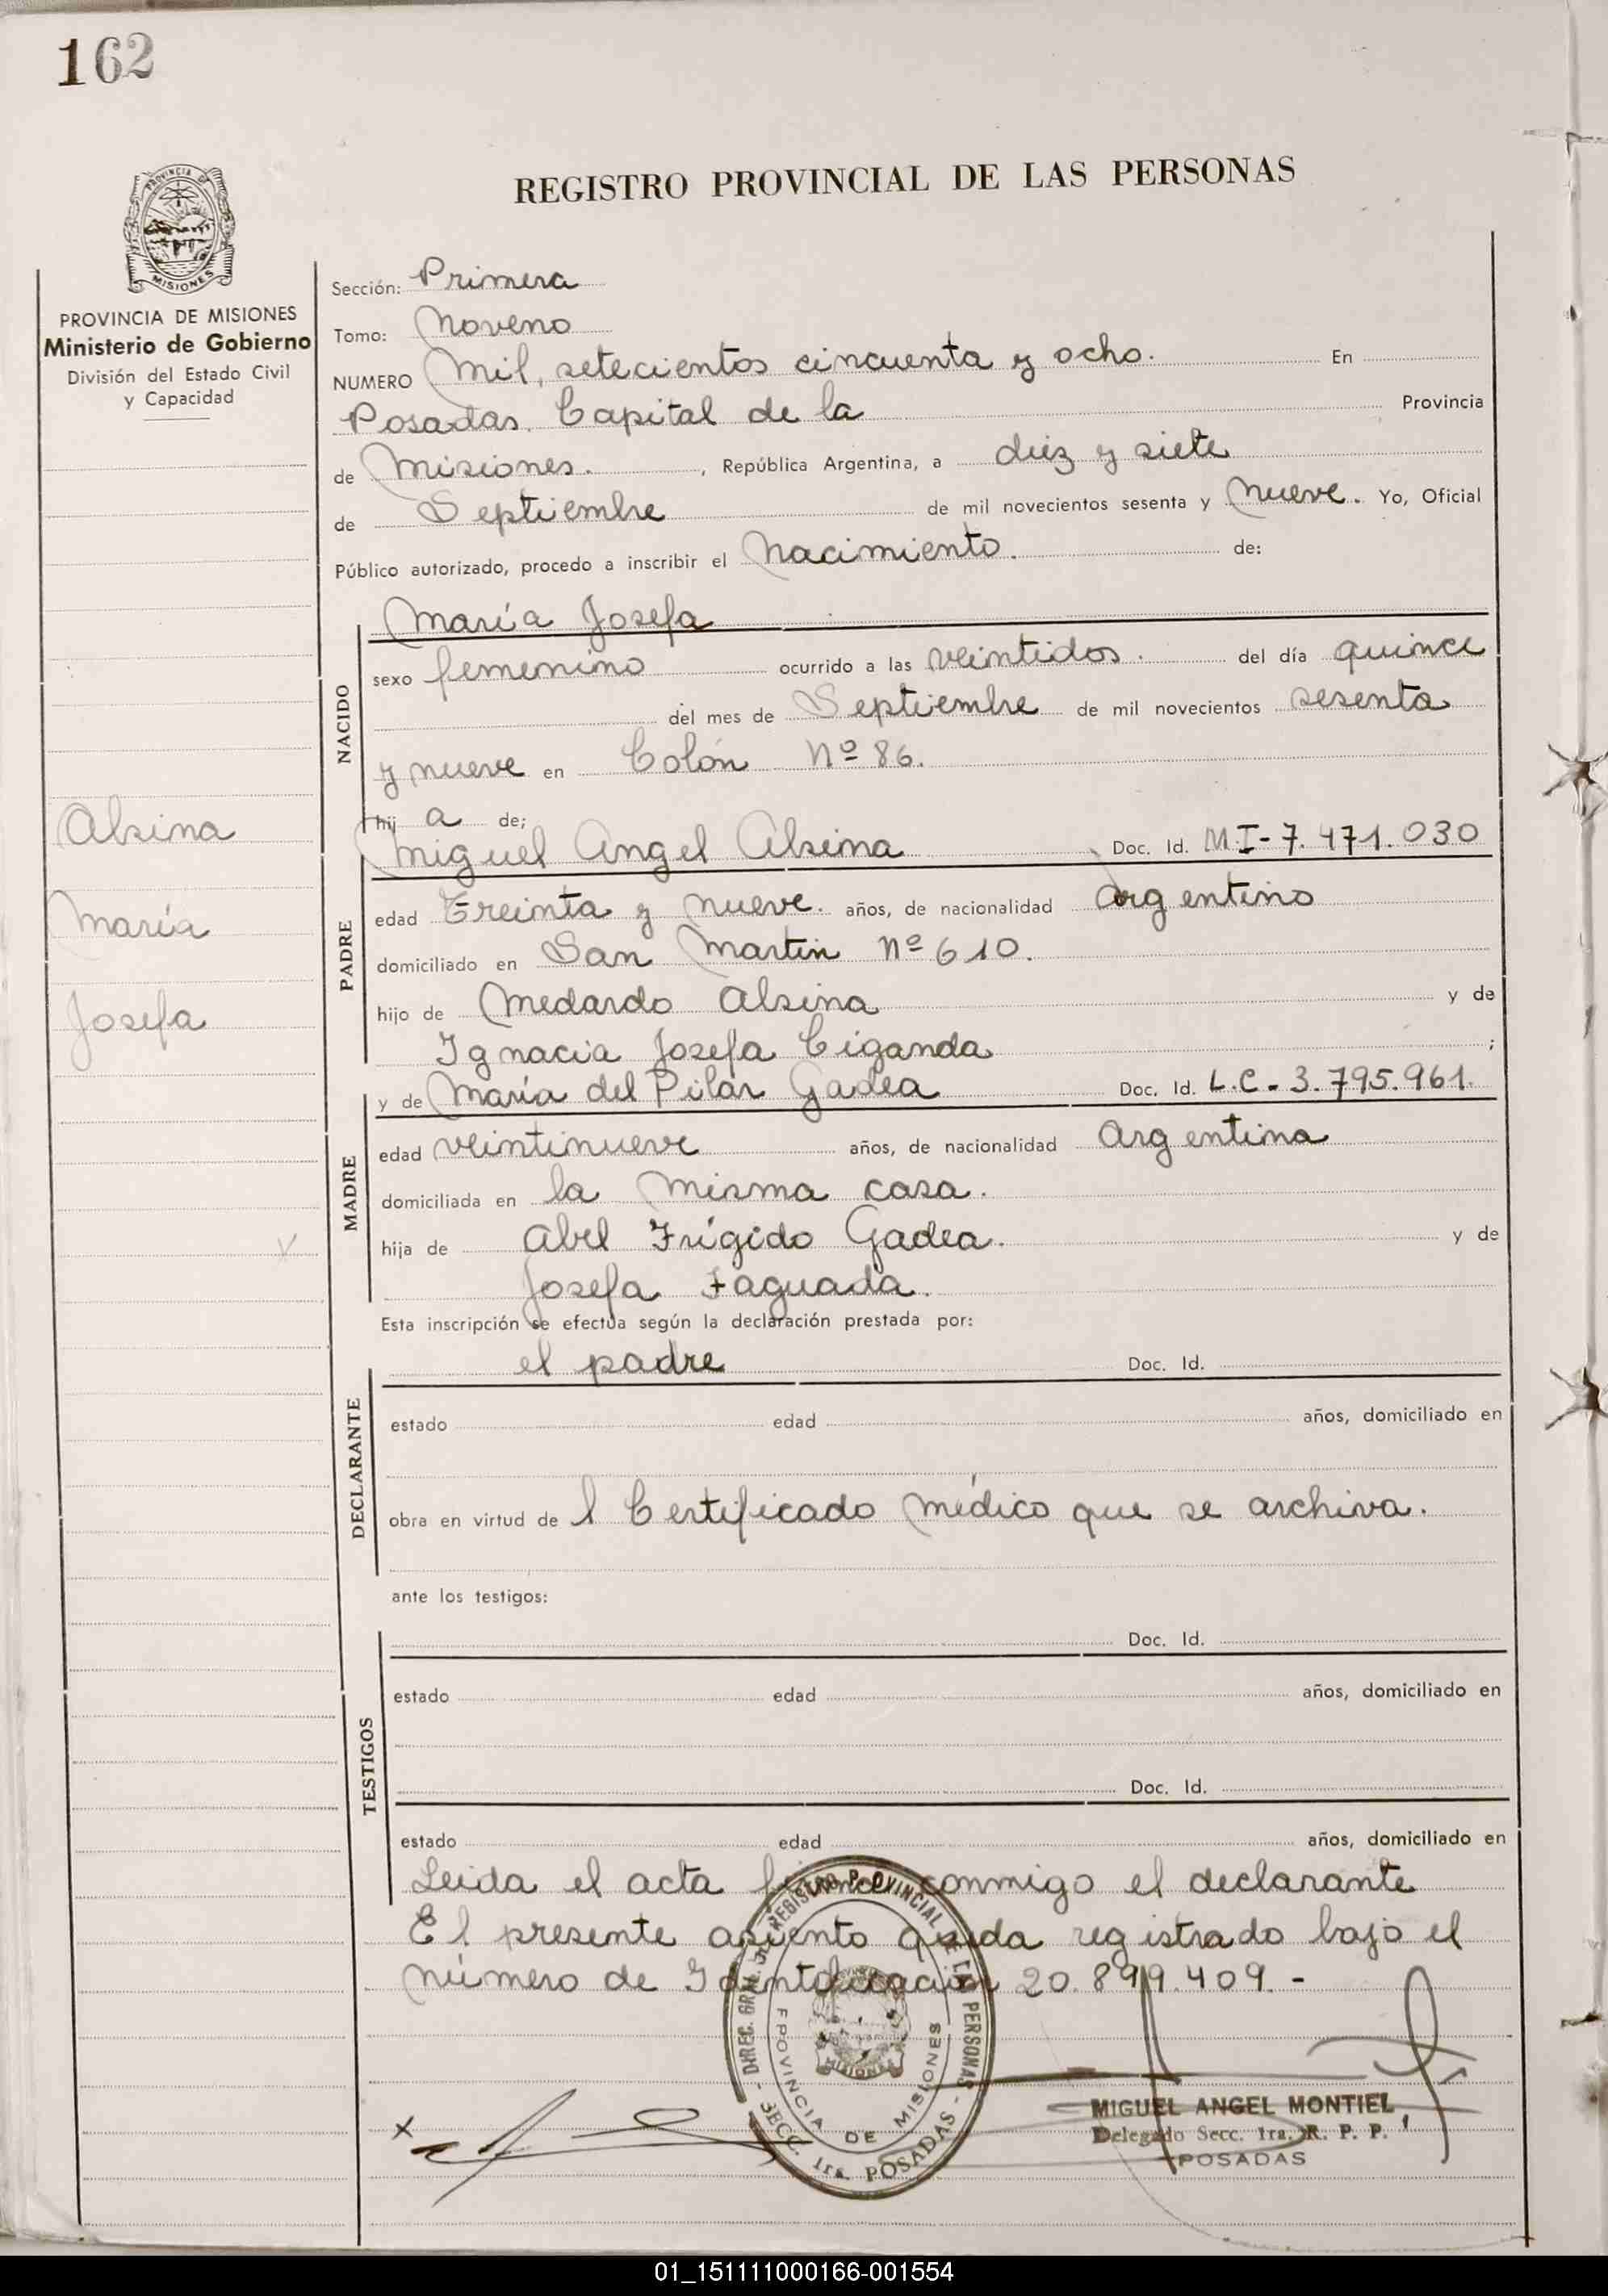 162
REGISTRO PROVINCIAL DE LAS PERSONAS
PROVINCIA DE
MISIONES
PROVINCIA DE MISIONES
Ministerio de Gobierno
División del Estado Civil
y Capacidad
Alsina
María
Josefa
Sección: Primera
Tomo: Noveno
NUMERO Mil, setecientos cincuenta y ocho. En
Posadas. Capital de la Provincia
de Misiones. , República Argentina, a diez y siete
de Septiembre de mil novecientos sesenta y nueve. Yo, Oficial
Público autorizado, procedo a inscribir el nacimiento. de:
María Josefa
NACIDO
sexo femenino ocurrido a las veintidos. del día quince
del mes de Septiembre de mil novecientos sesenta
y nueve en Colón Nº 86.
hij a de;
Miguel Angel Alsina Doc. Id. M.I-7.471.030
PADRE
edad Treinta y nueve. años, de nacionalidad argentino
domiciliado en San Martin Nº 610.
hijo de Medardo Alsina y de
Ignacia Josefa Ciganda ;
y de María del Pilar Gadea Doc. Id. L.C-3.795.961.
MADRE
edad veintinueve años, de nacionalidad argentina
domiciliada en la misma casa.
hija de Abel Frígido Gadea. y de
Josefa Faguada.
Esta inscripción se efectúa según la declaración prestada por:
el padre Doc. Id.
DECLARANTE
estado edad años, domiciliado en
obra en virtud de l Certificado médico que se archiva.
ante los testigos:
Doc. Id.
TESTIGOS
estado edad años, domiciliado en
Doc. Id.
estado edad años, domiciliado en
Leida el acta firma conmigo el declarante
El presente asiento queda registrado bajo el
número de Identificación 20.899.409.-
DIREC. GRAL. REGISTRO PROVINCIAL DE LAS PERSONAS
- SECC. 1ra. POSADAS -
PROVINCIA DE MISIONES
MISIONES
x
MIGUEL ANGEL MONTIEL
Delegado Secc. 1ra. R. P. P.
POSADAS
01_151111000166-001554